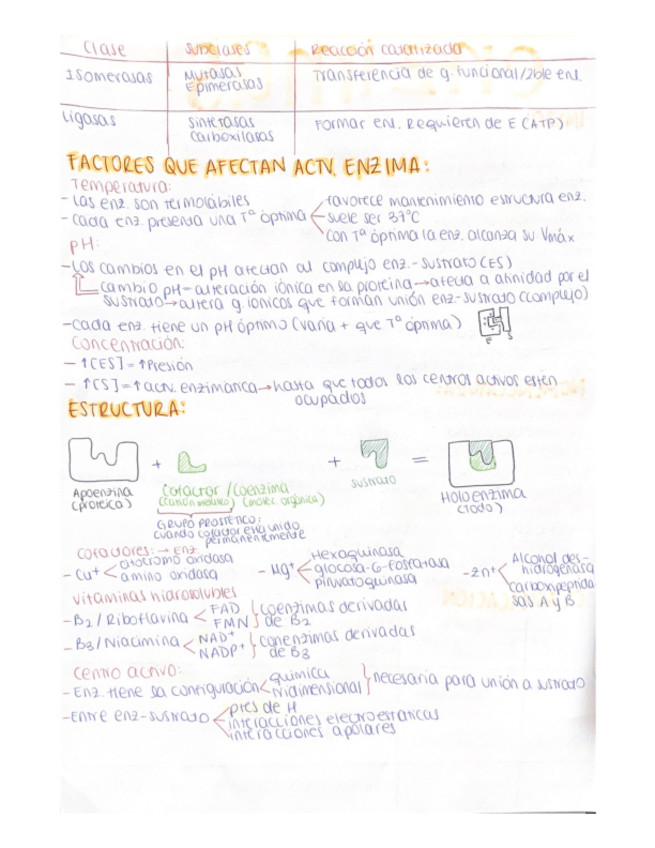 Clase Subclases Reacción catalizada
Isomerasas Mutasas Epimerasas Transferencia de g. funcional/2ble enl.
Ligasas Sintetasas Carboxilasas Formar enl. Requieren de E (ATP)
FACTORES QUE AFECTAN ACTV. ENZIMA:
Temperatura:
- Las enz. son termolábiles
- Cada enz. presenta una Tª óptima
favorece mantenimiento estructura enz.
suele ser 37°C
con Tª óptima la enz. alcanza su Vmáx
pH:
- Los cambios en el pH afectan al complejo enz.-sustrato (ES)
cambio pH → alteración iónica en sa proteína → afecta a afinidad por el
sustrato → altera g. iónicos que forman unión enz-sustrato (complejo)
- Cada enz. tiene un pH óptimo (varía + que Tª óptima)
E S
Concentración:
- ↑[ES] = ↑Presión
- ↑[S] = ↑ actv. enzimática → hasta que todos los centros activos estén
ocupados
ESTRUCTURA:
+ + =
Apoenzima
(proteica)
Cofactor / Coenzima
(catión metálico) (molec. orgánica)
sustrato
Holoenzima
(todo)
GRUPO PROSTÉTICO:
cuando cofactor está unido
permanentemente
Cofactores: → Enz
- Cu+ < citocromo oxidasa
amino oxidasa
- Mg+ < Hexoquinasa
glocosa-6-fosfatasa
piruvatoquinasa
- Zn+ < Alcohol des-
hidrogenasa
carboxipeptida
sas A y B
Vitaminas hidrosolubles
- B2 / Riboflavina < FAD
FMN } coenzimas derivadas
de B2
- B3 / Niacimina < NAD+
NADP+ } conenzimas derivadas
de B3
Centro activo:
- Enz. tiene sa configuración < química
tridimensional } necesaria para unión a sustrato
- Entre enz-sustrato < ptes de H
interacciones electroestáticas
interacciones apolares